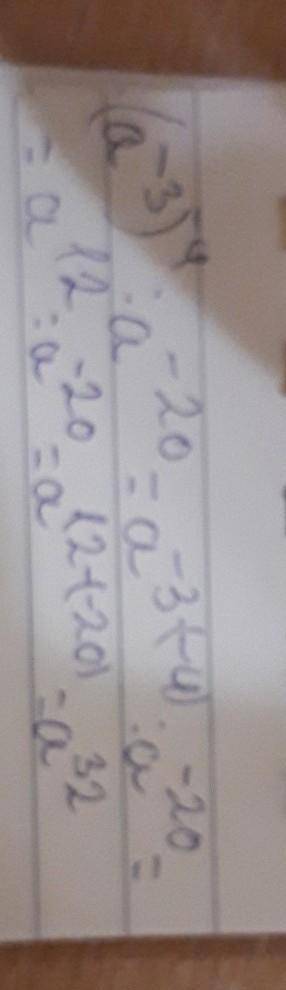 (a⁻³)⁻⁴ : a⁻²⁰ = a⁻³⁽⁻⁴⁾ : a⁻²⁰ =
= a¹² : a⁻²⁰ = a¹²⁻⁽⁻²⁰⁾ = a³²